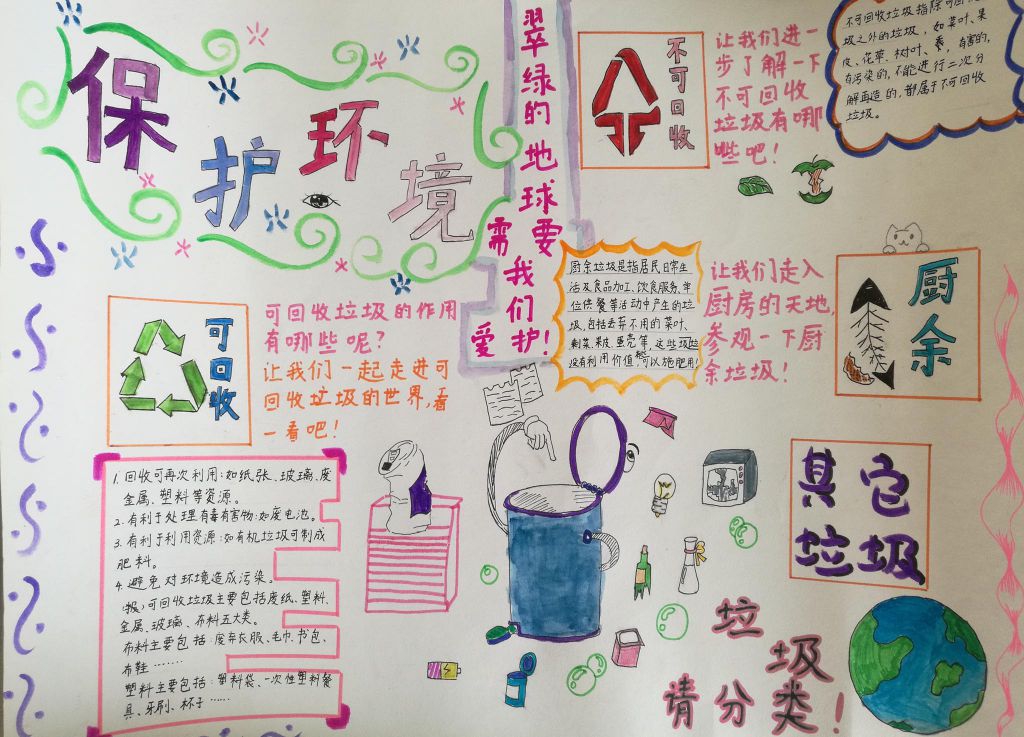 保护环境
翠绿的地球要
需我们
爱护!
不可回收
让我们进一
步了解一下
不可回收
垃圾有哪
些吧!
不可回收垃圾指除可回
圾之外的垃圾,如菜叶、果
皮、花草、树叶、
有害的,
有污染的,不能进行二次分
解再造的,都属于不可回收
垃圾。
厨余垃圾是指居民日常生
活及食品加工、饮食服务、单
位供餐等活动中产生的垃
圾,包括丢弃不用的菜叶、
剩菜、果皮、蛋壳等,这些垃圾
没有利用价值,可以施肥用!
让我们走入
厨房的天地,
参观一下厨
余垃圾!
厨余
可回收
可回收垃圾的作用
有哪些呢?
让我们一起走进可
回收垃圾的世界,看
一看吧!
1.回收可再次利用:如纸张、玻璃、废
金属、塑料等资源。
2.有利于处理有毒有害物:如废电池。
3.有利于利用资源:如有机垃圾可制成
肥料。
4.避免对环境造成污染。
(报)可回收垃圾主要包括废纸、塑料、
金属、玻璃、布料五大类。
布料主要包括:废弃衣服、毛巾、书包、
布鞋……
塑料主要包括:塑料袋、一次性塑料餐
具、牙刷、杯子……
其它
垃圾
垃圾
请分类!